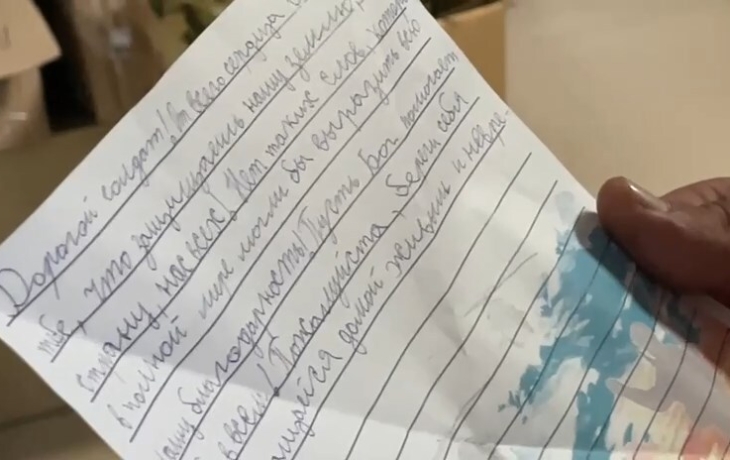 Дорогой солдат! От всего сердца
тебе, что защищаешь нашу землю,
страну, нас всех! Нет таких слов, которые
в полной мере могли бы выразить всю
нашу благодарность! Пусть Бог помогает
всем! Пожалуйста, береги себя
живым и невре-